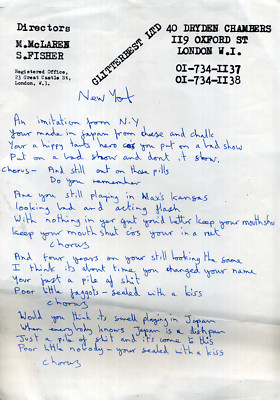 Directors
M. McLAREN
S. FISHER
Registered Office,
23 Great Castle St.
London, W.I.
GLITTERBEST LTD
40 DRYDEN CHAMBERS
119 OXFORD ST
LONDON W.I.
01-734-1137
01-734-1138
New York
An imitation from N.Y
Your made in Japan from cheese and chalk
Your a hippy tarts hero cos you put on a bad show
Put on a bad show and dont it show.
Chorus - And still out on those pills
Do you remember
Are you still playing in Max's Kansas
looking bad and acting flash
With nothing in yer gut you'd better keep your mouth shu
keep your mouth shut cos your in a rut
Chorus
And four years on your still looking the same
I think its about time you changed your name
Your just a pile of shit
Poor little faggots - sealed with a kiss
Chorus
Would you think its swell playing in Japan
When everybody knows Japan is a dishpan
Just a pile of shit and its come to this
Poor little nobody - your sealed with a kiss
Chorus